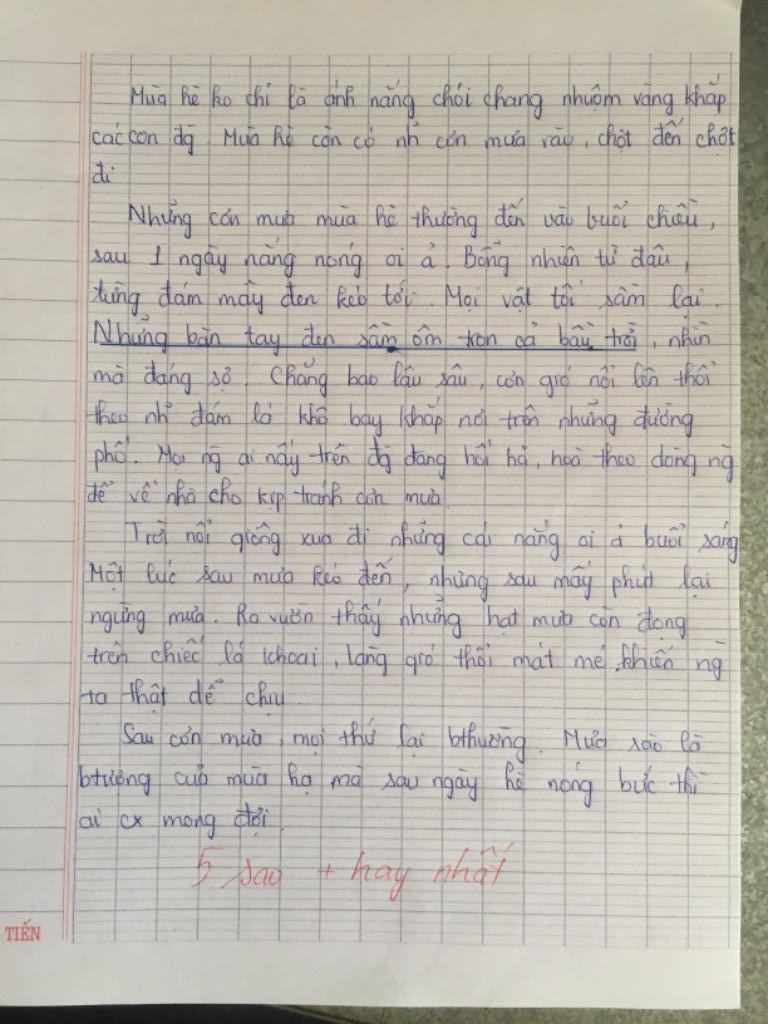 Mùa hè ko chỉ là ánh nắng chói chang nhuộm vàng khắp
các con đg Mùa hè còn có nh~ cơn mưa rào, chợt đến chợt
đi
Những cơn mưa mùa hè thường đến vào buổi chiều,
sau 1 ngày nắng nóng oi ả. Bỗng nhiên từ đâu,
từng đám mây đen kéo tới. Mọi vật tối sầm lại.
Những bàn tay đen sầm ôm trọn cả bầu trời, nhìn
mà đáng sợ. Chẳng bao lâu sau, cơn gió nổi lên thổi
theo nh~ đám lá khô bay khắp nơi trên những đường
phố. Mọi ng ai nấy trên đg đang hối hả, hoà theo dòng ng
để về nhà cho kịp tránh cơn mưa.
Trời nổi giông xua đi những cái nắng oi ả buổi sáng
Một lúc sau mưa kéo đến, nhưng sau mấy phút lại
ngừng mưa. Ra vườn thấy những hạt mưa còn đọng
trên chiếc lá khoai, làng gió thổi mát mẻ khiến ng
ta thật dễ chịu.
Sau cơn mưa, mọi thứ lại bthường. Mưa rào là
btượng của mùa hạ mà sau ngày hè nóng bức thì
ai cx mong đợi.
5 sao + hay nhất
TIẾN